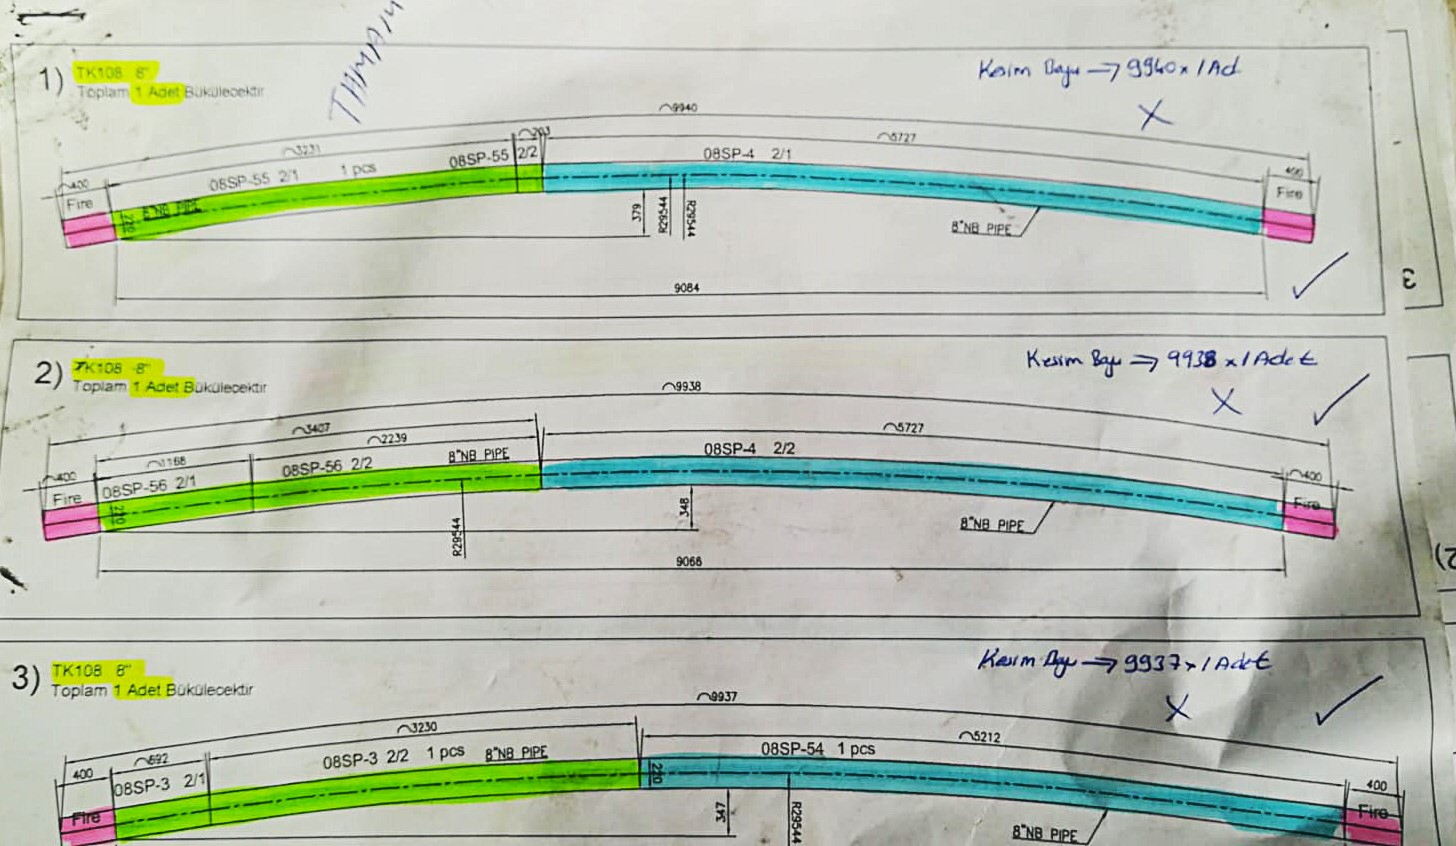 1) TK108 8"
Toplam 1 Adet Bükülecektir
Kesim Boyu → 9940 x 1 Ad
X
⌒9940
⌒3231
⌒5727
⌒400
Fire
08SP-55 2/1 1 pcs
08SP-55 2/2
08SP-4 2/1
400
Fire
8"NB PIPE
220
379
R29544
R29544
8"NB PIPE
9084
3
2) TK108 8"
Toplam 1 Adet Bükülecektir
Kesim Boyu → 9938 x 1 Adet
X
⌒9938
⌒3407
⌒2239
⌒5727
⌒1168
⌒400
Fire
08SP-56 2/1
08SP-56 2/2
8"NB PIPE
08SP-4 2/2
⌒400
Fire
220
R29544
348
8"NB PIPE
9066
2)
3) TK108 8"
Toplam 1 Adet Bükülecektir
Kesim Boyu → 9937 x 1 Adet
X
⌒9937
⌒3230
⌒5212
⌒692
400
Fire
08SP-3 2/1
08SP-3 2/2 1 pcs
8"NB PIPE
08SP-54 1 pcs
400
Fire
220
347
R29544
8"NB PIPE